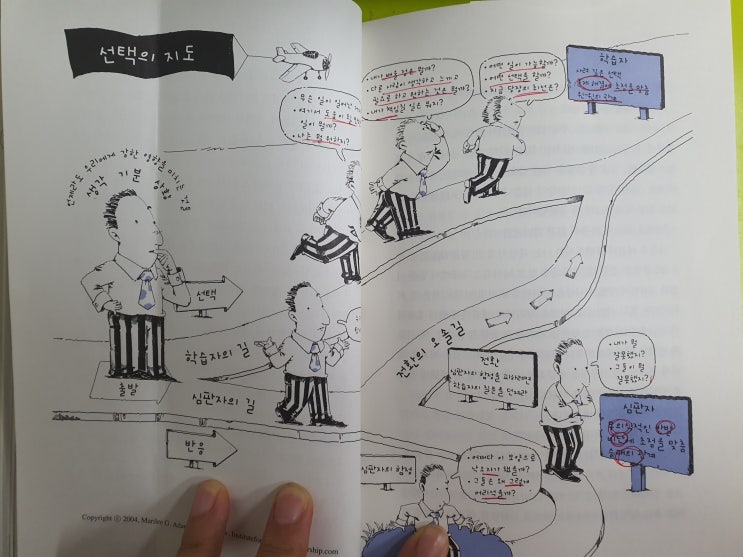 선택의 지도
언제라도 우리에게 강한 영향을 미치는 것들
생각 기분 상황
• 무슨 일이 일어난
• 여기서 도움이
일이 뭘까?
• 나는 뭘 원하지?
• 내가 배울 점은 뭘까?
• 다른 사람이 생각하고 느끼고
필요로 하고 원하는 것은 뭘까?
• 내가 책임질 일은 뭐지?
• 어떤 일이 가능할까?
• 어떤 선택을 할까?
• 지금 당장의 최선은?
학습자
사려 깊은 선택
문제 해결에 초점을 맞춤
선택
출발
학습자의 길
심판자의 길
반응
전환의 오솔길
전환
심판자의 함정을 피하려면
학습자의 질문을 던져라
• 내가 뭘
잘못했지?
• 그들이 뭘
잘못했지?
심판자
무의식적인 반응
비난에 초점을 맞춤
승패의 관계
심판자의 함정
• 어쩌다 이 모양으로
낙오자가 됐을까?
• 그들은 왜 그렇게
어리석을까?
Copyright ⓒ 2004, Marilee G.